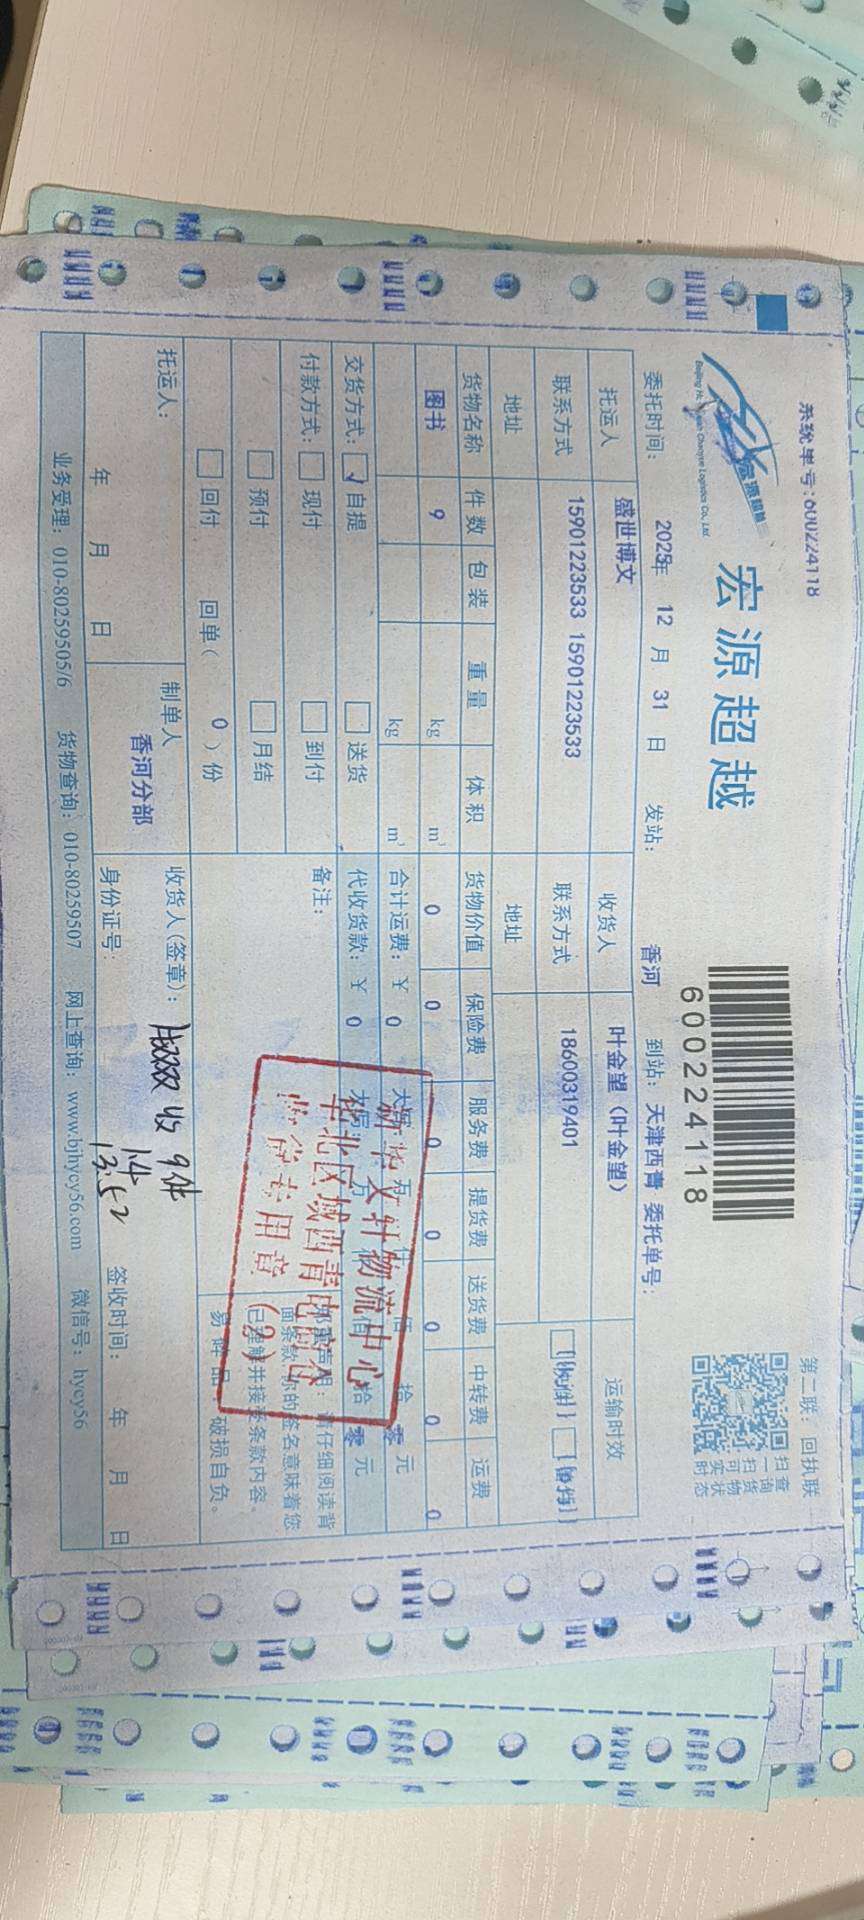 系统单号:600224118
第二联：回执联
宏源超越
600224118
扫一扫可实时
查询货物状态
委托时间： 2025年 12 月 31 日 发站： 香河 到站：天津西青 委托单号：
托运人 盛世博文 收货人 叶金望（叶金望） 运输时效
联系方式 15901223533 15901223533 联系方式 18600319401
地址 地址
货物名称 件数 包装 重量 体积 货物价值 保险费 服务费 提货费 送货费 中转费 运费
图书 9 kg m³ 0 0 0 0 0 0 0
kg m³ 合计运费：￥ 0 拾 零 元
交货方式： ✓ 自提 送货 代收货款：￥ 0 拾 零 元
付款方式： 现付 到付 备注：
预付 月结
回付 回单（ 0 ）份
请仔细阅读背
面条款，你的签名意味着您
已理解并接受条款内容。
易碎品，破损自负。
新华文轩物流中心
华北区域西青
专用章
托运人： 年 月 日
制单人 香河分部
收货人(签章)： 收9件
13:52
身份证号： 签收时间： 年 月 日
业务受理：010-80259505/6 货物查询：010-80259507 网上查询：www.bjhycy56.com 微信号：hycy56